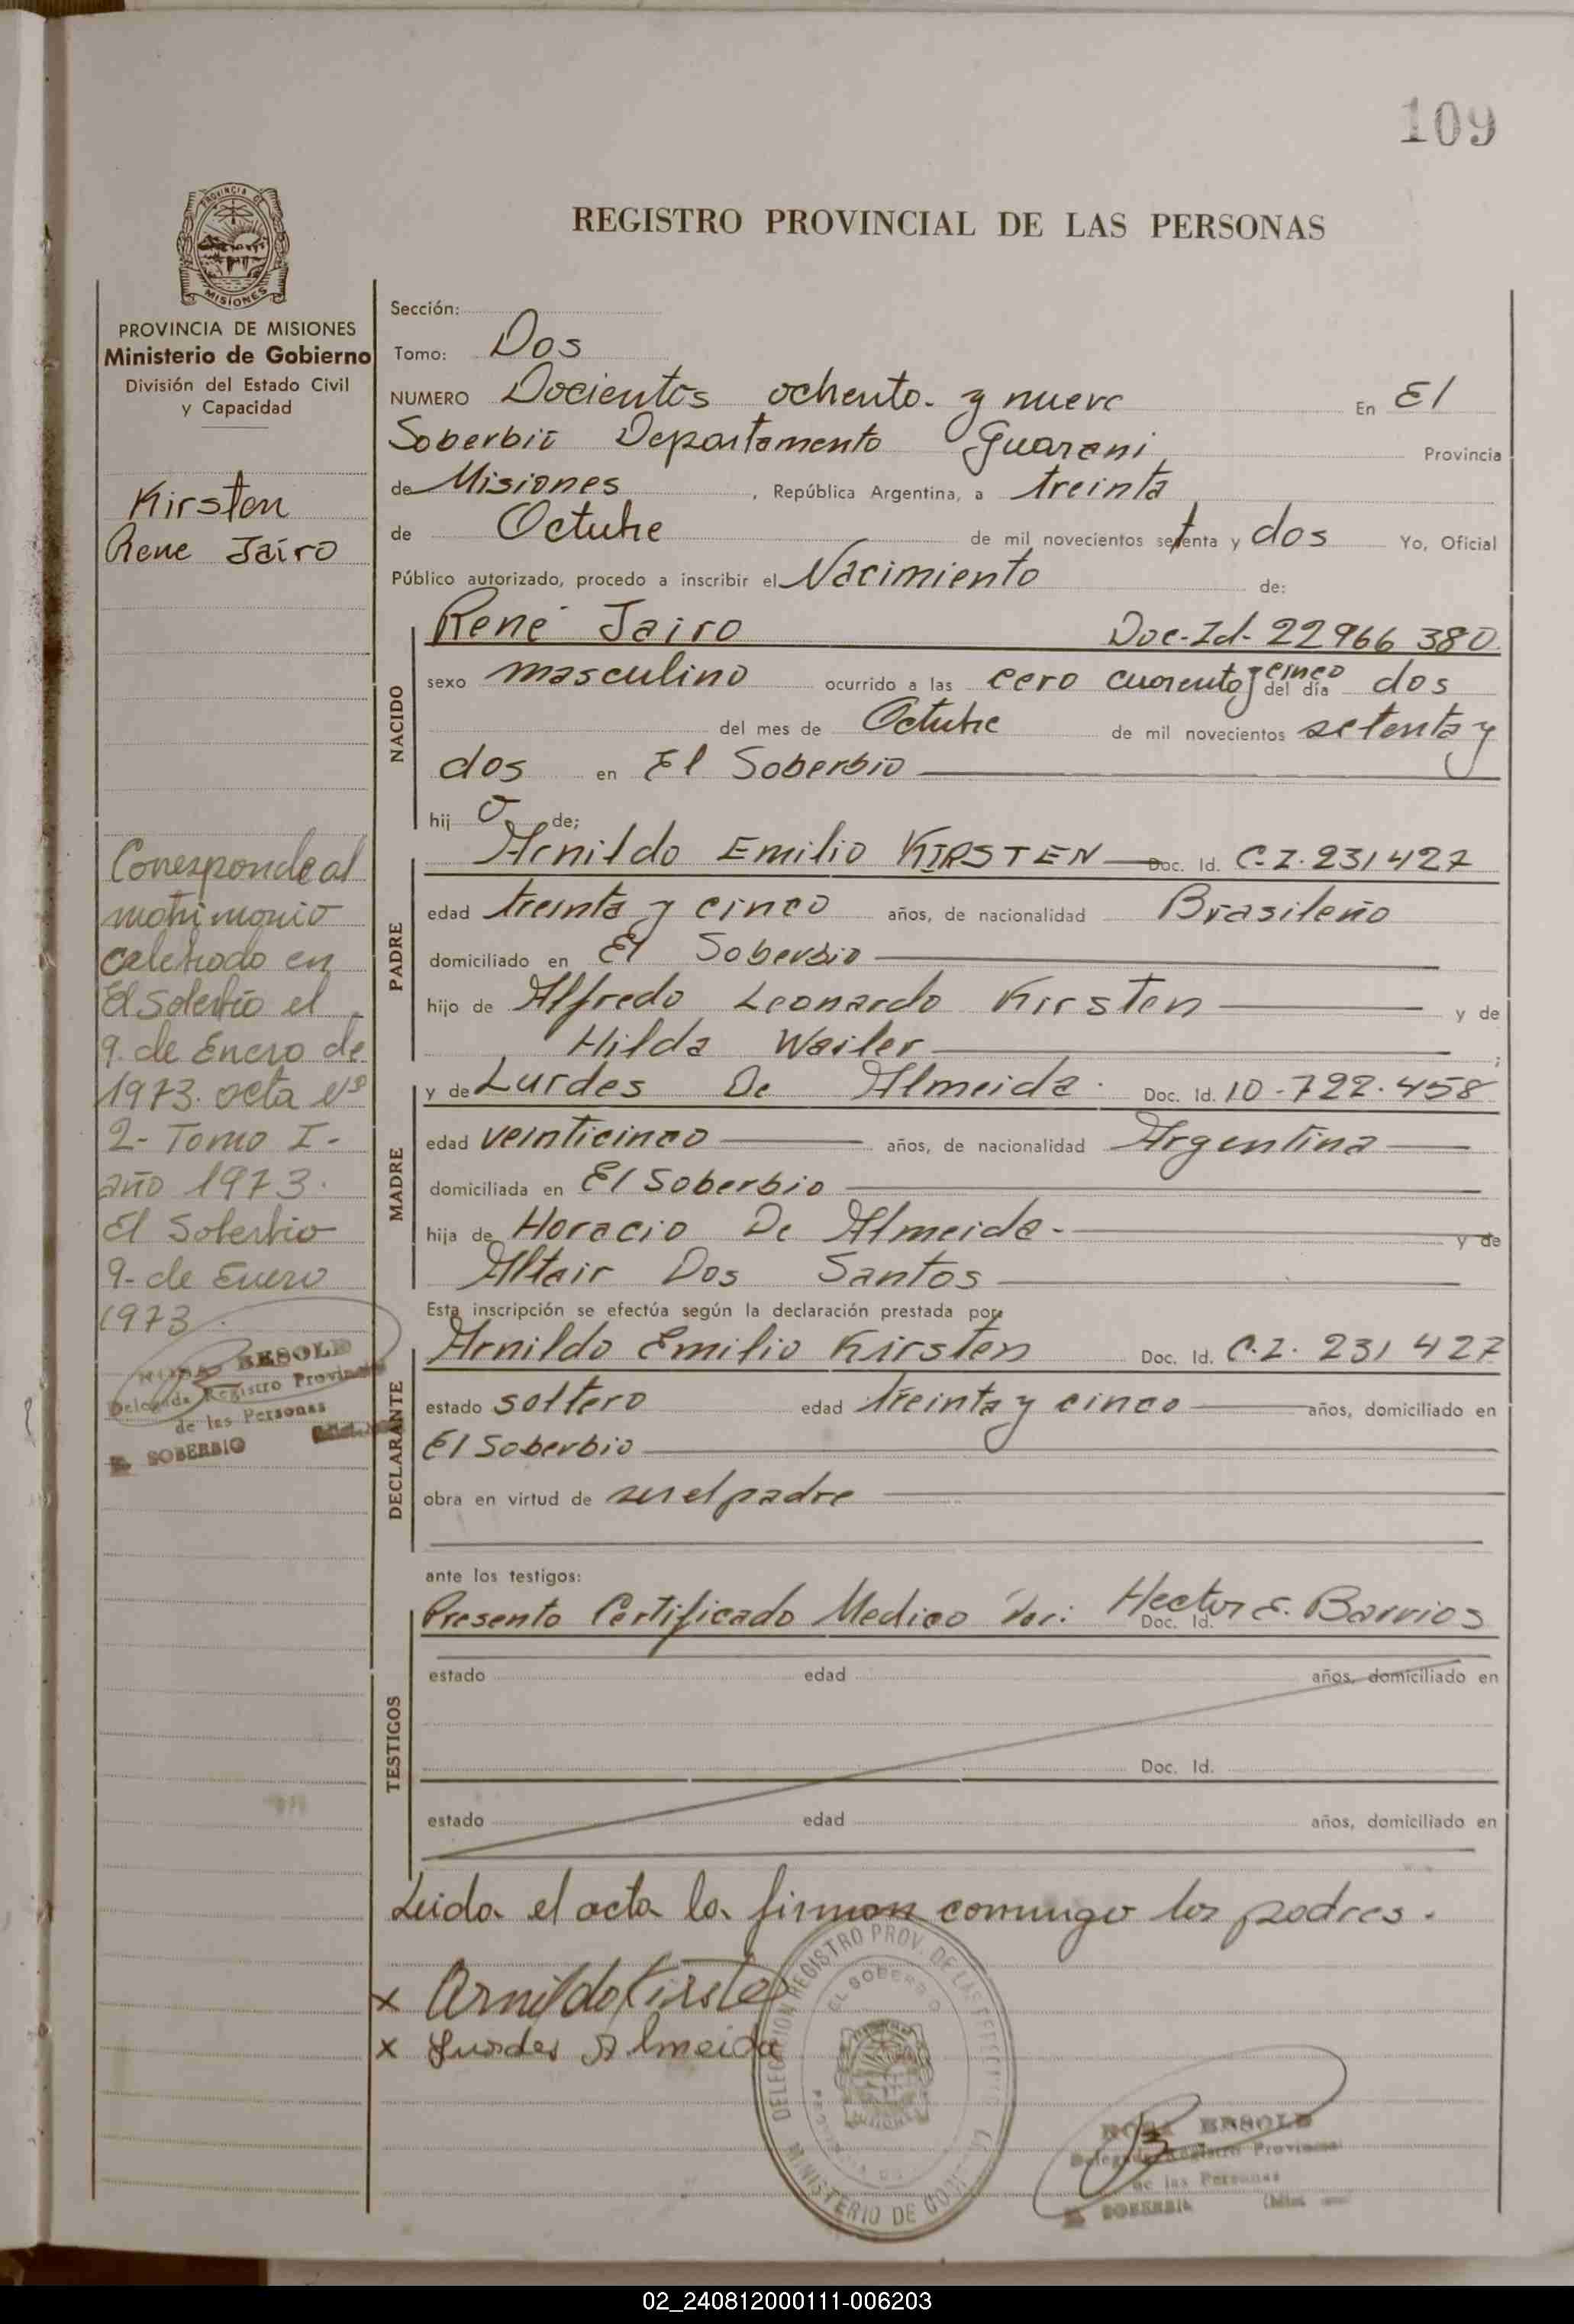 109
REGISTRO PROVINCIAL DE LAS PERSONAS
PROVINCIA DE MISIONES
PROVINCIA DE MISIONES
Ministerio de Gobierno
División del Estado Civil
y Capacidad
Kirsten
Rene Jairo
Corresponde al
matrimonio
celebrado en
El Soberbio el
9. de Enero de
1973. acta Nº
2- Tomo I-
año 1973.
El Soberbio
9- de Enero
1973.
ROSA BESOLD
Delegada Registro Provincial
de las Personas
EL SOBERBIO
Sección:
Tomo: Dos
NUMERO Docientos ochenta y nueve En El
Soberbio Departamento Guarani Provincia
de Misiones, República Argentina, a treinta
de Octubre de mil novecientos setenta y dos Yo, Oficial
Público autorizado, procedo a inscribir el Nacimiento de:
NACIDO
René Jairo Doc-Id- 22966 380
sexo masculino ocurrido a las cero cuarenta y cinco del día dos
del mes de Octubre de mil novecientos setenta y
dos en El Soberbio
hij o de;
PADRE
Arnildo Emilio KIRSTEN Doc. Id. C.I. 231427
edad treinta y cinco años, de nacionalidad Brasileño
domiciliado en El Soberbio
hijo de Alfredo Leonardo Kirsten y de
Hilda Wailer ;
MADRE
y de Lurdes De Almeida. Doc. Id. 10-722.458
edad veinticinco años, de nacionalidad Argentina
domiciliada en El Soberbio
hija de Horacio De Almeida- y de
Altair Dos Santos
Esta inscripción se efectúa según la declaración prestada por:
DECLARANTE
Arnildo Emilio Kirsten Doc. Id. C.I. 231427
estado soltero edad treinta y cinco años, domiciliado en
El Soberbio
obra en virtud de ser el padre
ante los testigos:
TESTIGOS
Presento Certificado Medico Por: Hector E. Barrios
Doc. Id.
estado edad años, domiciliado en
Doc. Id.
estado edad años, domiciliado en
Leida el acta la firman conmigo los padres.
x Arnildo Kirsten
x Lurdes Almeida
DELEGACION REGISTRO PROV. DE LAS PERSONAS
EL SOBERBIO
MINISTERIO DE GOBIERNO
ROSA BESOLD
Delegada Registro Provincial
de las Personas
EL SOBERBIO
02_240812000111-006203